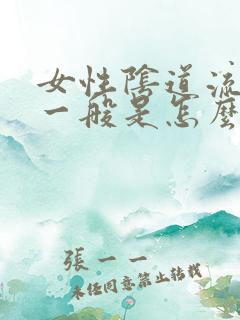 女性陰道流
一般是怎麼
張一一
未經同意禁止轉載